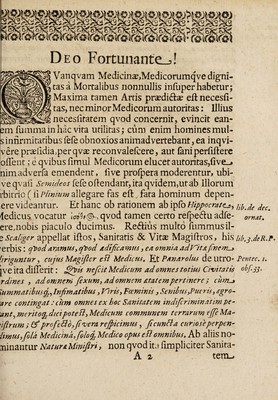 DEO Fortunante!
QVanqvam Medicinæ, Medicorumqve digni-
tas à Mortalibus nonnullis insuper habetur;
Maxima tamen Artis prædictæ est necessi-
tas, nec minor Medicorum autoritas: Illius
necessitatem qvod concernit, evincit ean
em summa in hâc vita utilitas; cùm enim homines mul-
is infirmitatibus sese obnoxios animadvertebant, ea inqvi-
vêre præsidia, per qvæ reconvalescere, aut sani persistere
ossent: è qvibus simul Medicorum elucet autoritas, sive
nim adversa emendent, sive prospera moderentur, ubi-
ve qvasi Semideos sese ostendant, ita qvidem, ut ab Illorum
rbitrio (si Plinium allegare fas est, fata hominum depen-
ere videantur. Et hanc ob rationem ab ipso Hippocrate,
Medicus, vocatur quod tamen certo respectu adse-
ere, nobis piaculo ducimus. Rectiùs multò summus il-
e Scaliger appellat istos, Sanitatis & Vitæ Magistros, his
verbis: qvod edimus, qvod ædificamus, ea omnia ad Vitæ finem
iriguntur, cujus Magister est Medicus. Et Panarolus de utro-
qve ita disserit: Qvis nescit Medicum ad omnes totius Civitatis
rdines, ad omnem sexum, ad omnem ætatem pertinere; cùm
Summatibusq;, Infimatibus, Viris, Fœminis, Senibus, Pueris, ægro-
are contingat: cùm omnes ex hoc Sanitatem indiscriminatim pe-
ant, meritoq; dici potest, Medicum communem terrarum esse Ma-
istrum; & profectò, si vera respicimus, si cuncta curiosè perpen-
limus, solâ Medicinâ, soloq; Medico opus est omnibus. Ab aliis no-
minantur Naturæ Ministri, non qvod ita simpliciter Sanita-
A 2 tem
lib. de dec.
ornat.
lib. 3. de R. P.
Pentec. 1.
obs. 33.